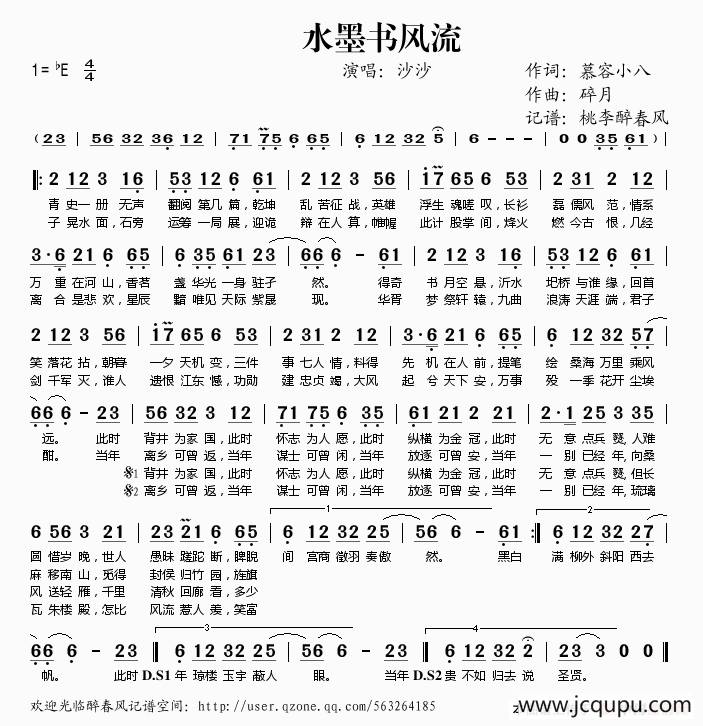 水墨书风流
1=♭E 4/4 演唱：沙沙 作词：慕容小八
作曲：碎月
记谱：桃李醉春风
(23 | 56 32 36 12 | 71 75 6 65 | 6 12 32 5 | 6 - - - | 0 0 35 61) |
‖: 2 12 3 16 | 53 12 6 61 | 2 12 3 56 | 17 65 6 36 | 2 31 6 61 |
青史一册 无声 翻阅 第几 篇，乾坤 乱 苦征 战，英雄 浮生 魂嗟 叹，长衫 磊 儒风 范，情系
子 晃水 面，石旁 运筹 一局 展，迎诡 辩 在人 算，帷幄 此计 股掌 间，烽火 燃 今古 恨，几经
3·6 21 6 65 | 6 35 61 23 | 66 6 - 61 | 2 12 3 16 | 53 12 6 61 |
万 重 在河 山，香茗 盏 华光 一身 驻孑 然。 得奇 书 月空 悬，沂水 圯桥 与谁 缘，回首
离 合 是悲 欢，星辰 黯 唯见 天际 紫晟 现。 华胥 梦 祭轩 辕，九曲 浪涛 天涯 端，君子
2 12 3 56 | 17 65 6 36 | 2 12 6 61 | 3·6 21 6 65 | 6 12 32 57 |
笑 落花 拈，朝春 一夕 天机 变，三件 事 七人 情，料得 先 机 在人 前，提笔 绘 桑海 万里 乘风
剑 千军 灭，谁人 遗恨 江东 憾，功勋 建 忠贞 竭，大风 起 兮 天下 安，万事 殁 一季 花开 尘埃
66 6 - 23 | 56 32 3 12 | 71 75 6 35 | 61 21 2 12 | 2·1 25 3 35 |
远。 此时 背井 为家 国，此时 怀志 为人 愿，此时 纵横 为金 冠，此时 无 意 点兵 燹，人难
酣。 当年 离乡 可曾 返，当年 谋士 可曾 闲，当年 放逐 可曾 安，当年 一 别 已经 年，向桑
𝄋1 背井 为家 国，此时 怀志 为人 愿，此时 纵横 为金 冠，此时 无 意 点兵 燹，但长
𝄋2 离乡 可曾 返，当年 谋士 可曾 闲，当年 放逐 可曾 安，当年 一 别 已经 年，琉璃
6 56 3 21 | 23 21 6 65 | 6 12 32 25 | 56 6 - 61 :‖ 6 12 32 27 |
圆 惜岁 晚，世人 愚昧 蹉跎 断，睥睨 间 宫商 徵羽 奏傲 然。 黑白 满 柳外 斜阳 西去
麻 移南 山，觅得 封侯 归竹 园，旌旗
风 送轻 雁，千里 清秋 回廊 看，多少
瓦 朱楼 殿，怎比 风流 惹人 羡，笑富
66 6 - 23 | 6 12 32 25 | 56 6 - 23 | 6 12 32 2 | 23 3 0 0 ‖
帆。 此时 D.S1 年 琼楼 玉宇 蔽人 眼。 当年 D.S2 贵 不如 归去 说 圣贤。
欢迎光临醉春风记谱空间：http://user.qzone.qq.com/563264185
www.jcqupu.com